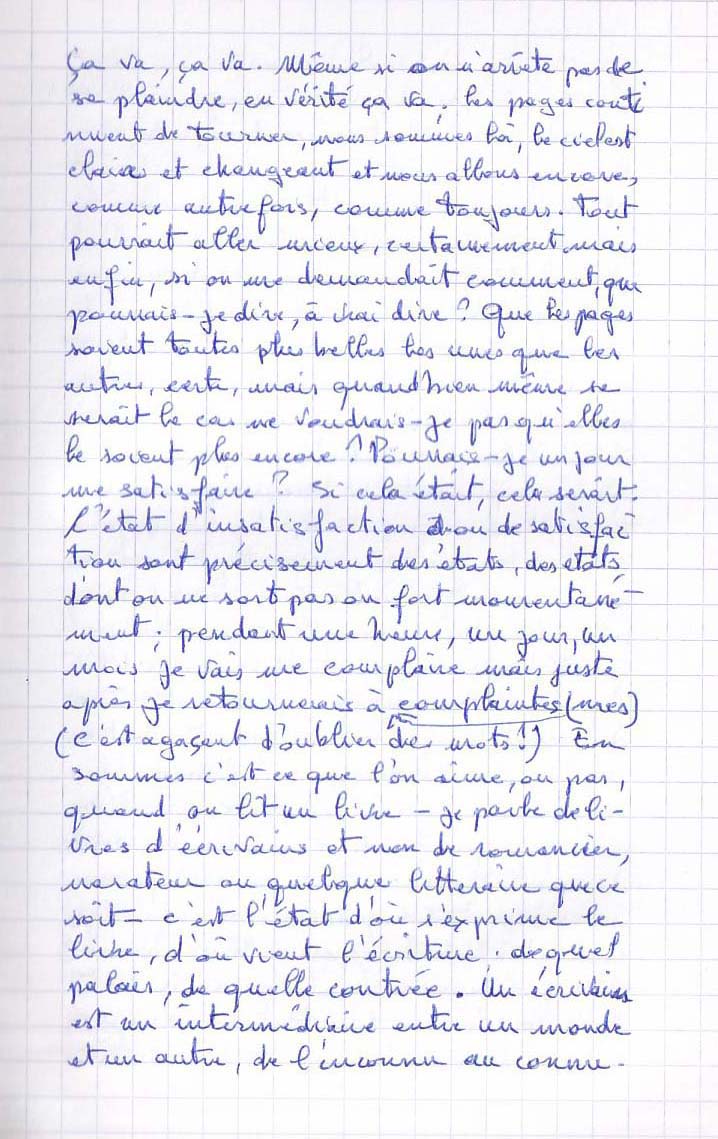 Ça va, ça va. Même si on n'arrête pas de
se plaindre, en vérité ça va, les pages conti
nuent de tourner, nous sommes là, le ciel est
clair et changeant et nous allons encore,
comme autrefois, comme toujours. Tout
pourrait aller mieux, certainement mais
enfin, si on me demandait comment, que
pourrais-je dire, à vrai dire ? Que les pages
soient toutes plus belles les unes que les
autres, certe, mais quand bien même se
serait le cas ne voudrais-je pas qu'elles
le soient plus encore ? Pourrais-je un jour
me satisfaire ? Si cela était, cela serait.
L'état d'insatisfaction ou de satisfac
tion sont précisement des états, des états
dont on ne sort pas ou fort momentané-
ment ; pendant une heure, un jour, un
mois je vais me complaire mais juste
après je retournerais à complaintes (mes)
(c'est agaçant d'oublier des mots !) En
sommes c'est ce que l'on aime, ou pas,
quand on lit un livre - je parle de li-
vres d'écrivains et non de romancier,
narateur ou quelque litteraire que ce
soit - c'est l'état d'où s'exprime le
livre, d'où vient l'écriture. de quel
palais, de quelle contrée. Un écrivains
est un intermédiaire entre un monde
et un autre, de l'inconnu au connu.